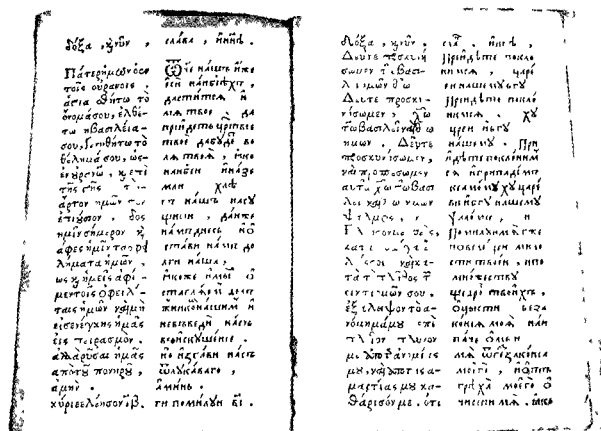 δόξα, ϗ νῦν,
Πάτερ ἡμῶν ὁ ἐν
τοῖς οὐρανοῖς.
ἁγιασθήτω τὸ
ὄνομά σου, ἐλθέ
τω ἡ βασιλεία
σου, γενηθήτω τὸ
θέλημά σου, ὡς
ἐν οὐρανῷ, ϗ ἐπὶ
τῆς γῆς τὸν
ἄρτον ἡμῶν τὸν
ἐπιούσιον, δος
ἡμῖν σήμερον ϗ
ἄφες ἡμῖν τὰ ὀφει
λήματα ἡμῶν,
ως ϗ ἡμεῖς ἀφί
μεν τοῖς ὀφειλέ
ταις ἡμῶν ϗ μὴ
εἰσενέγκης ἡμᾶς
εἰς πειρασμόν.
ἀλλὰ ῥῦσαι ἡμᾶς
ἀπὸ τοῦ πονηροῦ,
ἀμήν.
κύριε ἐλέησον ιβ.
слава, инн҃ѣ.
Ѿч҃е нашъ иже
еси на нб҃сѣхъ,
да ст҃итсѧ и
мѧ твое да
прїидетъ цр҃ствїе
твое да будетъ во
лѧ твоѧ, ꙗко
на нб҃си и на зе
мли хлѣ
бъ нашъ насу
щныи, даждь
намъ днесь и ѡ
стави намъ до
лги наша,
ꙗкоже и мы ѡ
ставлѧемъ долж
никомъ нашимъ и
не введи насъ
во искꙋшенїе,
но избави насъ
ѿ лꙋкаваго,
аминь.
ги помилꙋи вı.
Δόξα, ϗ νῦν,
Δεῦτε προσκυνή
σωμεν τῷ βασι
λεῖ ἡμῶν θῷ
Δεῦτε προσκυ
νίσωμεν, χῷ
τῷ βασιλεῖ ἡμῶν θῷ
ημων. Δεῦτε
προσκυνίσωμεν,
ϗ προσπέσωμεν
αυτῷ χῷ τῷ βασι
λεῖ ϗ θῷ ημων
Ψαλμὸς, ν
Ἐλέησόν με ὁ θς,
κατὰ τὸ μέγα ἔ
λεός σου ϗ κατὰ
τὸ πλῆθος τῶν
οἰκτιρμῶν σου,
ἐξάλειψον τὸ ἀ
νόμημά μου επι
πλεῖον πλῦνον
με ἀπὸ τῆς ἀνομίας
μου, ϗ ἀπὸ τῆς ἁ
μαρτίας μου κα
θάρισόν με. ὁτι
сла. инн҃ѣ,
Прїидѣте покло
нимсѧ, цареви
нашемꙋ бг҃ꙋ
Прїидѣте покло
нимсѧ. хꙋ
цреви и бг҃ꙋ
нашемꙋ. Прı
идѣте поклонимъ
сѧ и припадемъ
к самомꙋ хꙋ царе
ви и бг҃ꙋ нашемꙋ
Ѱаломъ, н
Помилꙋи мѧ бж҃е
по велицѣи мило
сти твоеи, и по
множествꙋ
щедротъ твоихъ,
ѡчисти безза
конїе мое наи
паче ѡмыи
мѧ ѿ беззаконїѧ
моегѡ, и ѿ
грѣха моегѡ ѡ
чисти мѧ. ꙗко